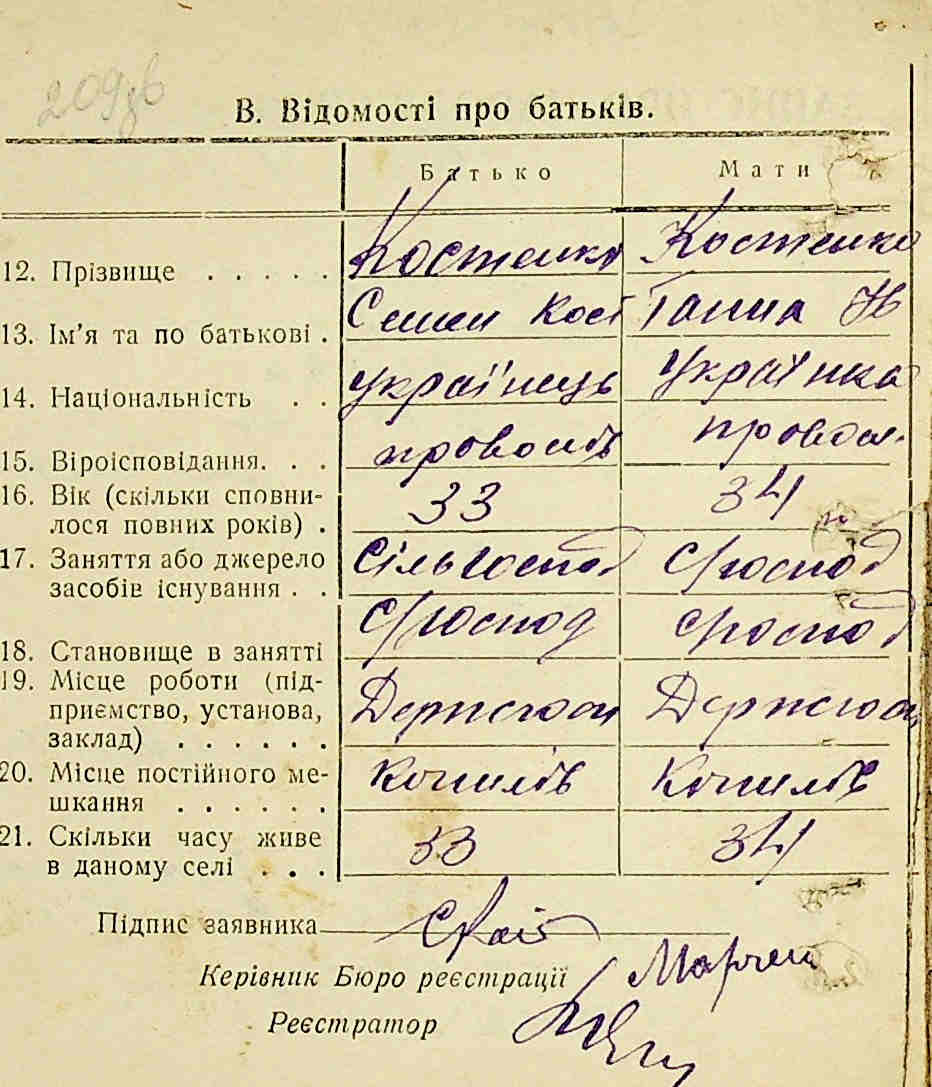 209зв
В. Відомості про батьків.
Батько Мати
12. Прізвище . . . . . Костенко Костенко
13. Ім'я та по батькові . Семен Кост Ганна
14. Національність . . українець українка
15. Віроісповідання. . . провосл
16. Вік (скільки сповни-
лося повних років) . 33 34
17. Заняття або джерело
засобів існування . . Сільгоспод С/господ
18. Становище в занятті С/господ С/господ
19. Місце роботи (під-
приємство, установа,
заклад) . . . . . .
20. Місце постійного ме-
шкання . . . . . . Копилів Копилів
21. Скільки часу живе
в даному селі . . . 33 34
Підпис заявника
Керівник Бюро реєстрації
Реєстратор